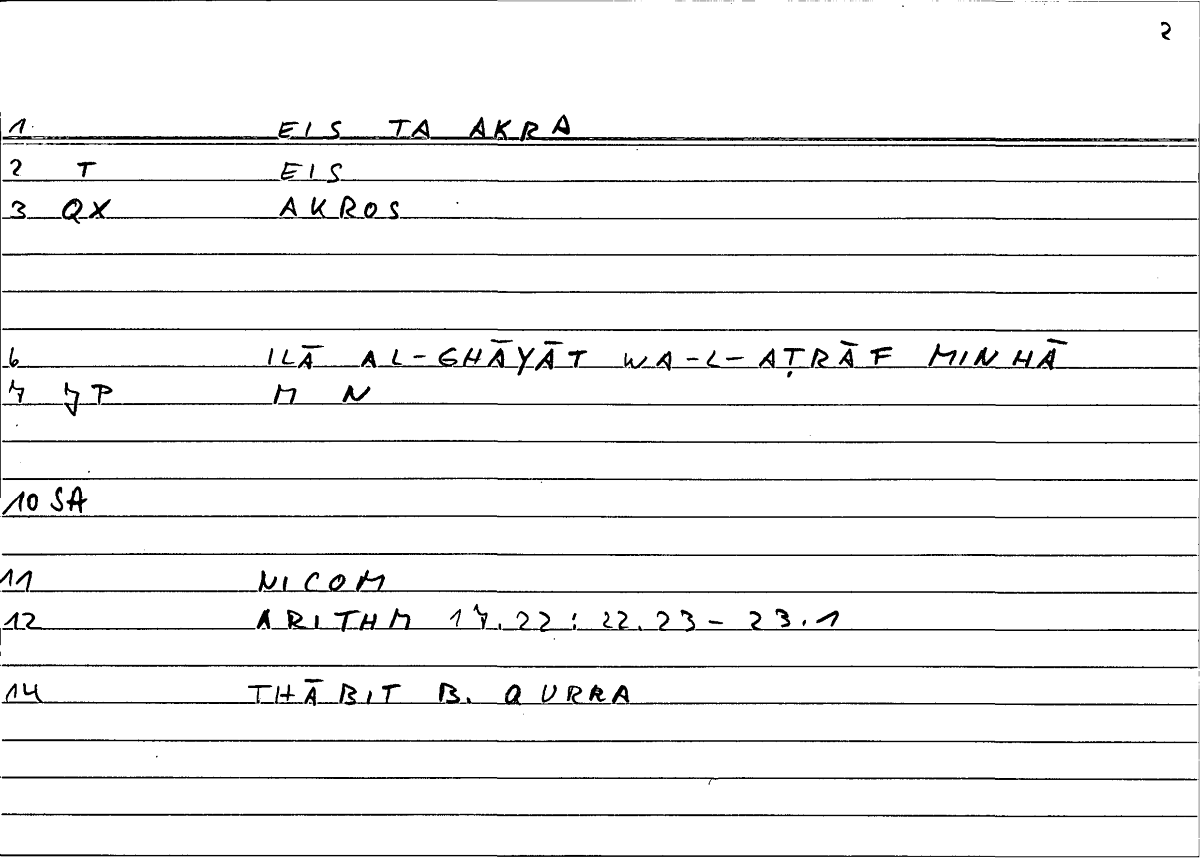 2
1 EIS TA AKRA
2 T EIS
3 QX AKROS
6 ILĀ AL-GHĀYĀT WA-L-AṬRĀF MINHĀ
7 JP M N
10 SA
11 NICOM
12 ARITHM 17.22 : 22.23 - 23.1
14 THĀBIT B. QURRA